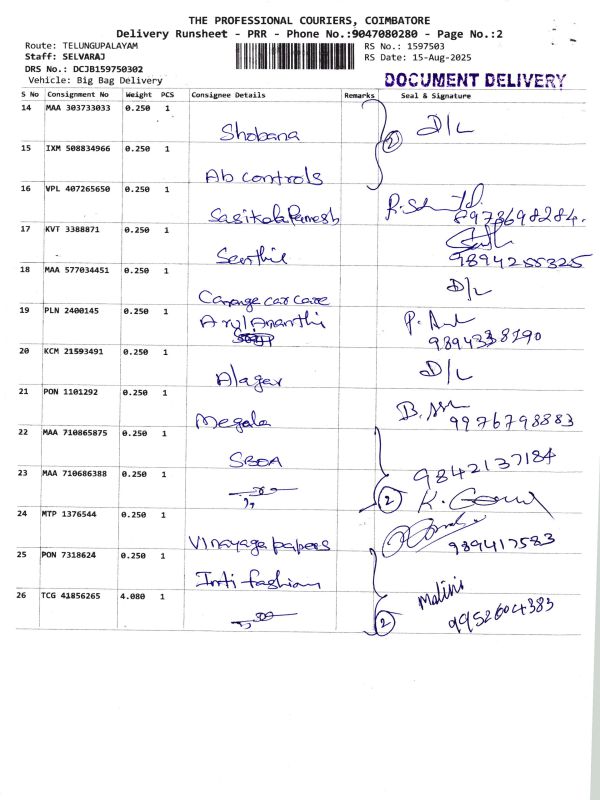 THE PROFESSIONAL COURIERS, COIMBATORE
Delivery Runsheet - PRR - Phone No.:9047080280 - Page No.:2
Route: TELUNGUPALAYAM
Staff: SELVARAJ
DRS No.: DCJB159750302
Vehicle: Big Bag Delivery
RS No.: 1597503
RS Date: 15-Aug-2025
DOCUMENT DELIVERY
S No Consignment No Weight PCS Consignee Details Remarks Seal & Signature
14 MAA 303733033 0.250 1 Shobana D/L
15 IXM 508834966 0.250 1 Ab controls
2
16 VPL 407265650 0.250 1 Sasikala Ramesh
8973698284.
17 KVT 3388871 0.250 1 Senthil
9894255325
18 MAA 577034451 0.250 1 Carange car care D/L
19 PLN 2400145 0.250 1 Arul Ananthi
9894338290
20 KCM 21593491 0.250 1 Alagar D/L
21 PON 1101292 0.250 1 Megala
9976798883
22 MAA 710865875 0.250 1 SBOA 9842137184
23 MAA 710686388 0.250 1
2
24 MTP 1376544 0.250 1 Vinayaga papers
989417583
25 PON 7318624 0.250 1 Inti fashion
Malini
26 TCG 41856265 4.080 1
2 9952604383